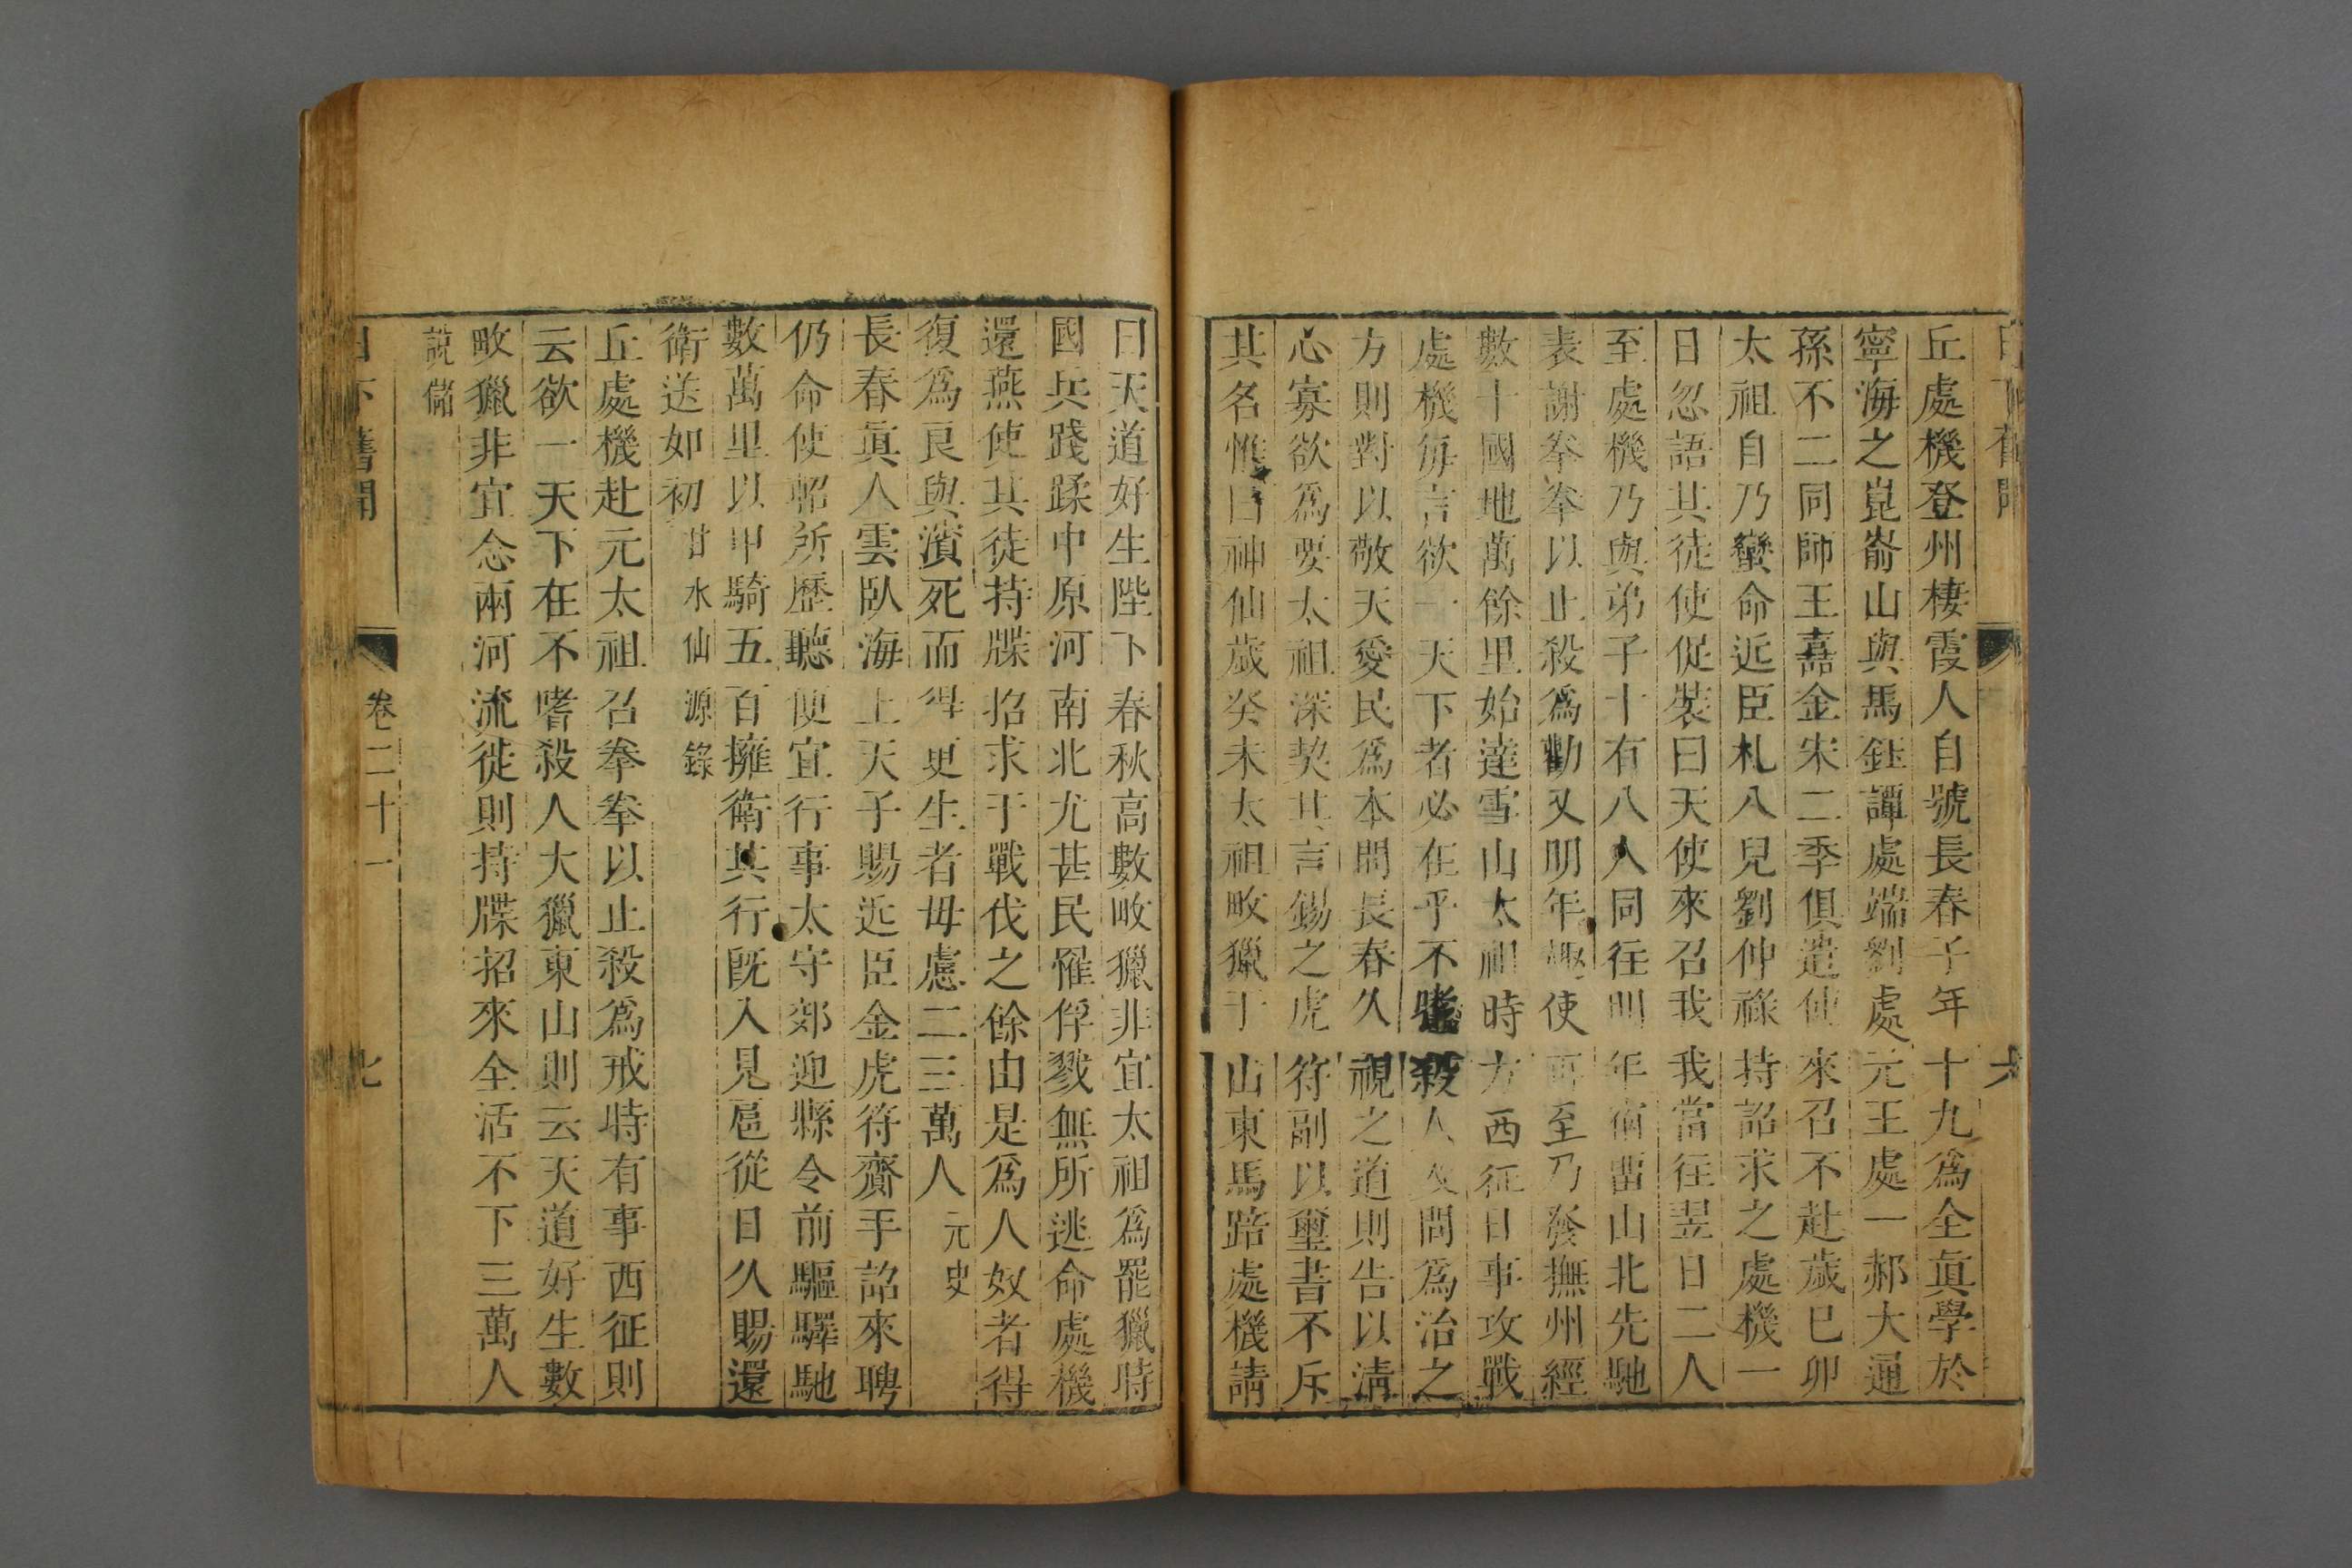 丘處機登州棲霞人自號長春子年十九爲全眞學於
寧海之崑崳山與馬鈺譚處端劉處元王處一郝大通
孫不二同師王嚞金宋二季俱遣使來召不赴歲巳卯
太祖自乃蠻命近臣札八兒劉仲祿持詔求之處機一
日忽語其徒使促裝曰天使來召我我當往翌日二人
至處機乃與弟子十有八人同往明年宿畱山北先馳
表謝拳拳以止殺爲勸又明年趣使再至乃發撫州經
數十國地萬餘里始達雪山太祖時方西征日事攻戰
處機每言欲一天下者必在乎不嗜殺人及問爲治之
方則對以敬天愛民爲本問長春久視之道則告以淸
心寡欲爲要太祖深契其言錫之虎符副以璽書不斥
其名惟曰神仙歲癸未太祖畋獵于山東馬踣處機請
六
曰天道好生陛下春秋高數畋獵非宜太祖爲罷獵時
國兵踐蹂中原河南北尤甚民罹俘戮無所逃命處機
還燕使其徒持牒招求于戰伐之餘由是爲人奴者得
復爲良與濱死而得更生者毋慮二三萬人元史
長春眞人雲臥海上天子賜近臣金虎符齎手詔來聘
仍命使軺所歷聽便宜行事太守郊迎縣令前驅驛馳
數萬里以甲騎五百擁衛其行旣入見扈從日久賜還
衛送如初甘水仙源錄
丘處機赴元太祖召拳拳以止殺爲戒時有事西征則
云欲一天下在不嗜殺人大獵東山則云天道好生數
畋獵非宜念兩河流徙則持牒招來全活不下三萬人
說儲
日下舊聞 卷二十一 七